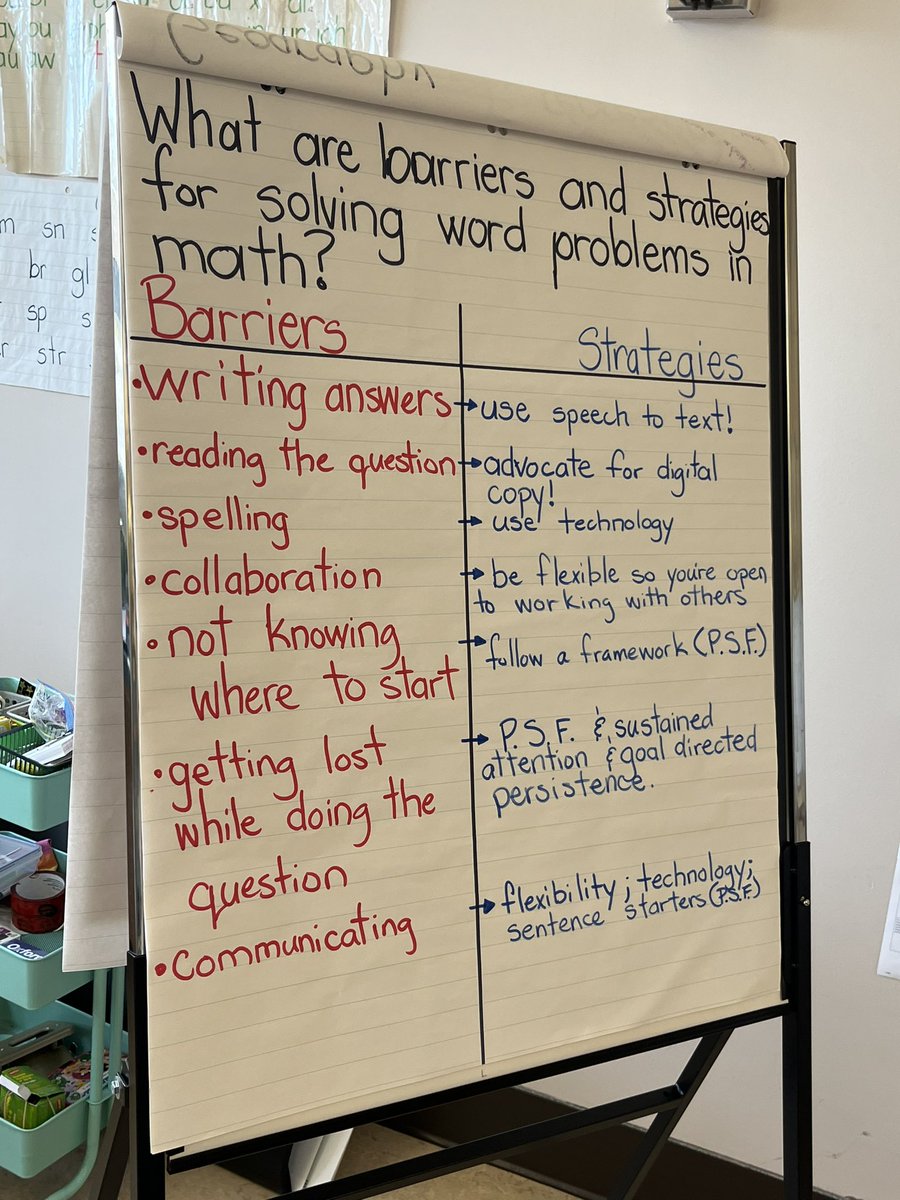 Geography
What are barriers and strategies
for solving word problems in
math?
Barriers
Strategies
•writing answers
→use speech to text!
•reading the question
→advocate for digital
copy!
•spelling
→use technology
•collaboration
→be flexible so you're open
to working with others
•not knowing
where to start
→follow a framework (P.S.F.)
•getting lost
while doing the
question
→P.S.F. & sustained
attention & goal directed
persistence.
•communicating
→flexibility; technology;
sentence starters (P.S.F.)
sn
br gl
sp s
str
au aw
Oxford